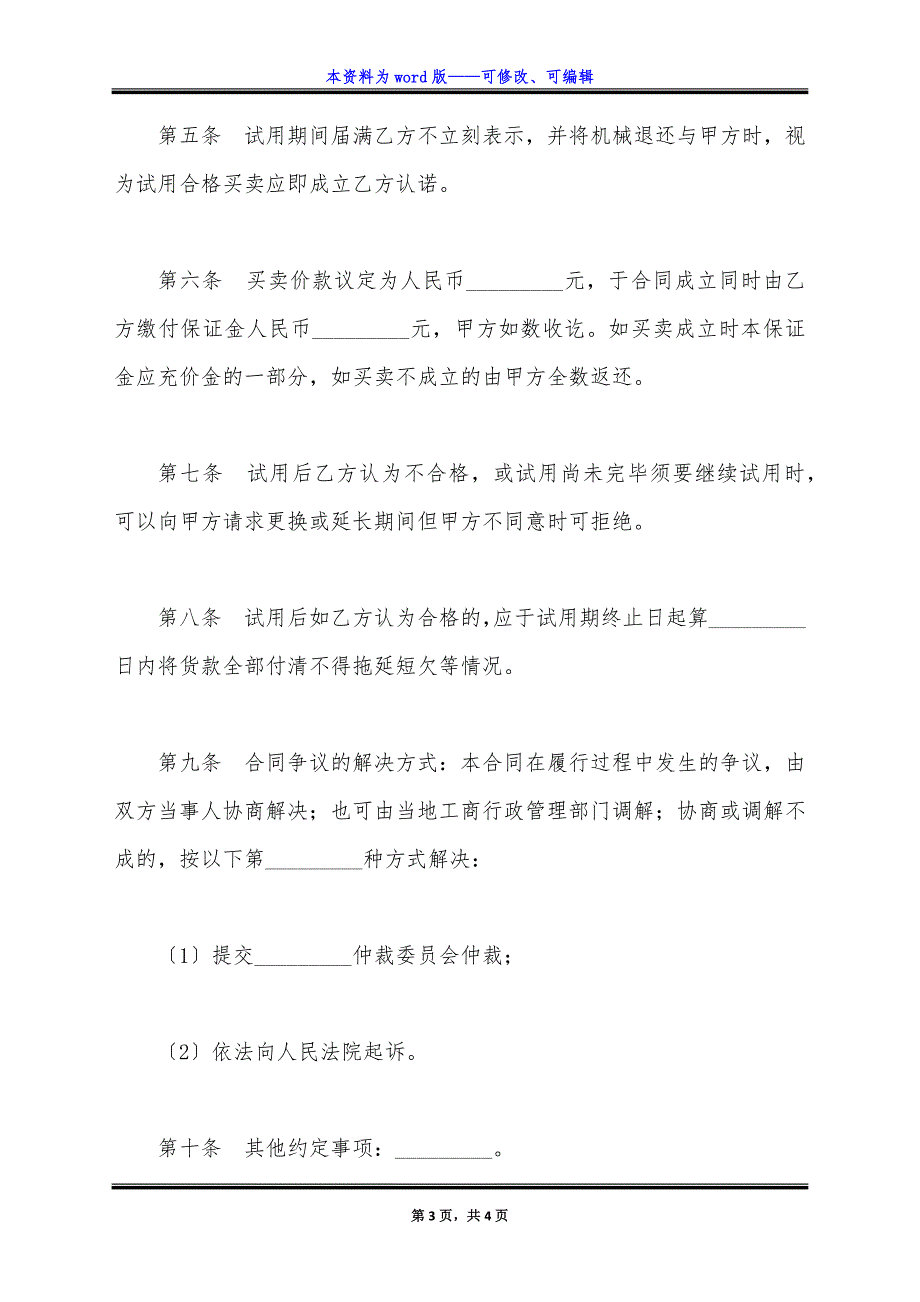 本资料为 word 版——可修改、可编辑
第五条　试用期间届满乙方不立刻表示，并将机械退还与甲方时，视
为试用合格买卖应即成立乙方认诺。
第六条　买卖价款议定为人民币_________元，于合同成立同时由乙
方缴付保证金人民币_________元，甲方如数收讫。如买卖成立时本保证
金应充价金的一部分，如买卖不成立的由甲方全数返还。
第七条　试用后乙方认为不合格，或试用尚未完毕须要继续试用时，
可以向甲方请求更换或延长期间但甲方不同意时可拒绝。
第八条　试用后如乙方认为合格的,应于试用期终止日起算_________
日内将货款全部付清不得拖延短欠等情况。
第九条　合同争议的解决方式：本合同在履行过程中发生的争议，由
双方当事人协商解决；也可由当地工商行政管理部门调解；协商或调解不
成的，按以下第_________种方式解决：
〔1〕提交_________仲裁委员会仲裁；
〔2〕依法向人民法院起诉。
第十条　其他约定事项：_________。
第 3 页，共 4 页